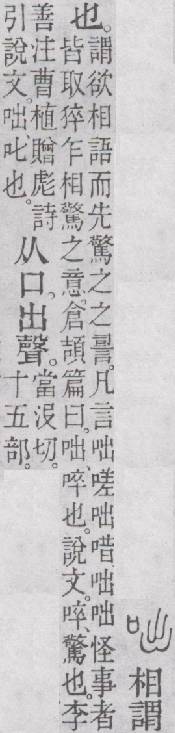 相謂
也。
謂欲相語而先驚之之䛐。凡言咄嗟咄唶咄咄怪事者
皆取猝乍相驚之意。倉頡篇曰。咄、啐也。說文。啐、驚也。李
善注曹植贈彪詩
引說文。咄、叱也。
从口。出聲。
當沒切。
十五部。